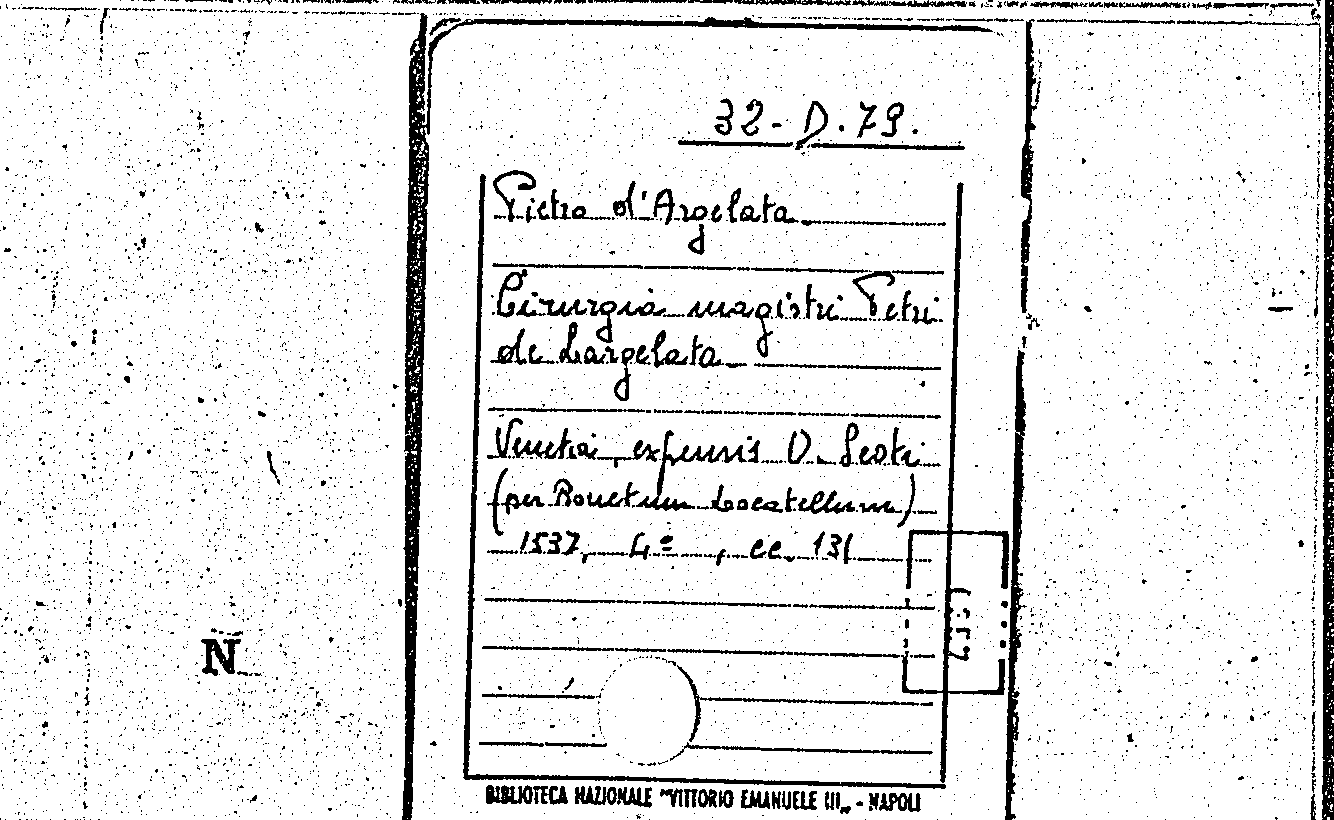 32-D.79.
Pietro d'Argelata
Cirurgia magistri Petri
de Largelata
Venetia, expensis O. Scoti
(per Bonetum Locatellum)
1537, 4º, cc. 131
N
BIBLIOTECA NAZIONALE "VITTORIO EMANUELE III„ - NAPOLI